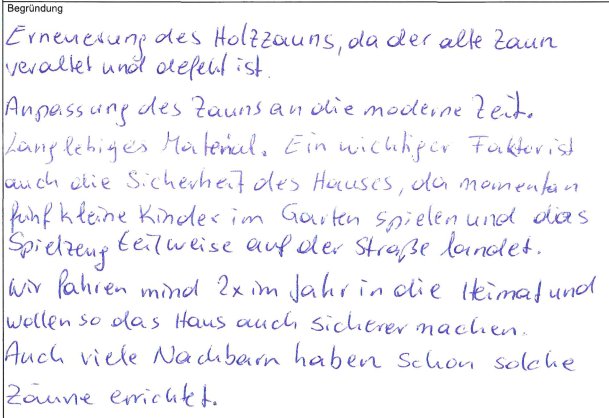 Begründung
Erneuerung des Holzzauns, da der alte Zaun
veraltet und defekt ist.
Anpassung des Zauns an die moderne Zeit.
Langlebiges Material. Ein wichtiger Faktor ist
auch die Sicherheit des Hauses, da momentan
fünf kleine Kinder im Garten spielen und das
Spielzeug teilweise auf der Straße landet.
Wir fahren mind 2x im Jahr in die Heimat und
wollen so das Haus auch sicherer machen.
Auch viele Nachbarn haben schon solche
Zäune errichtet.